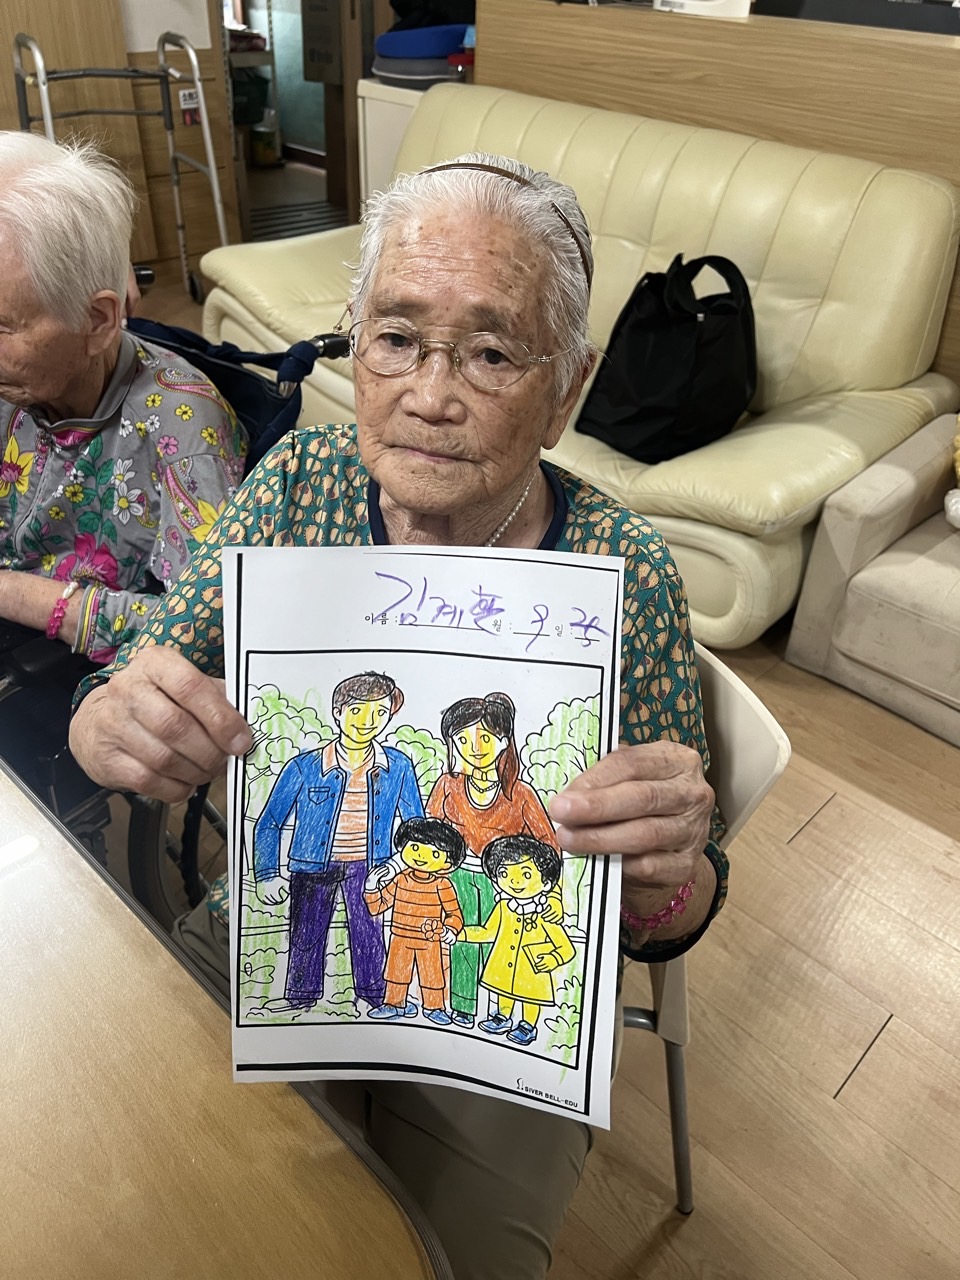 이름 : 김계환 월 : 9 일 : 25
SIVER BELL-EDU